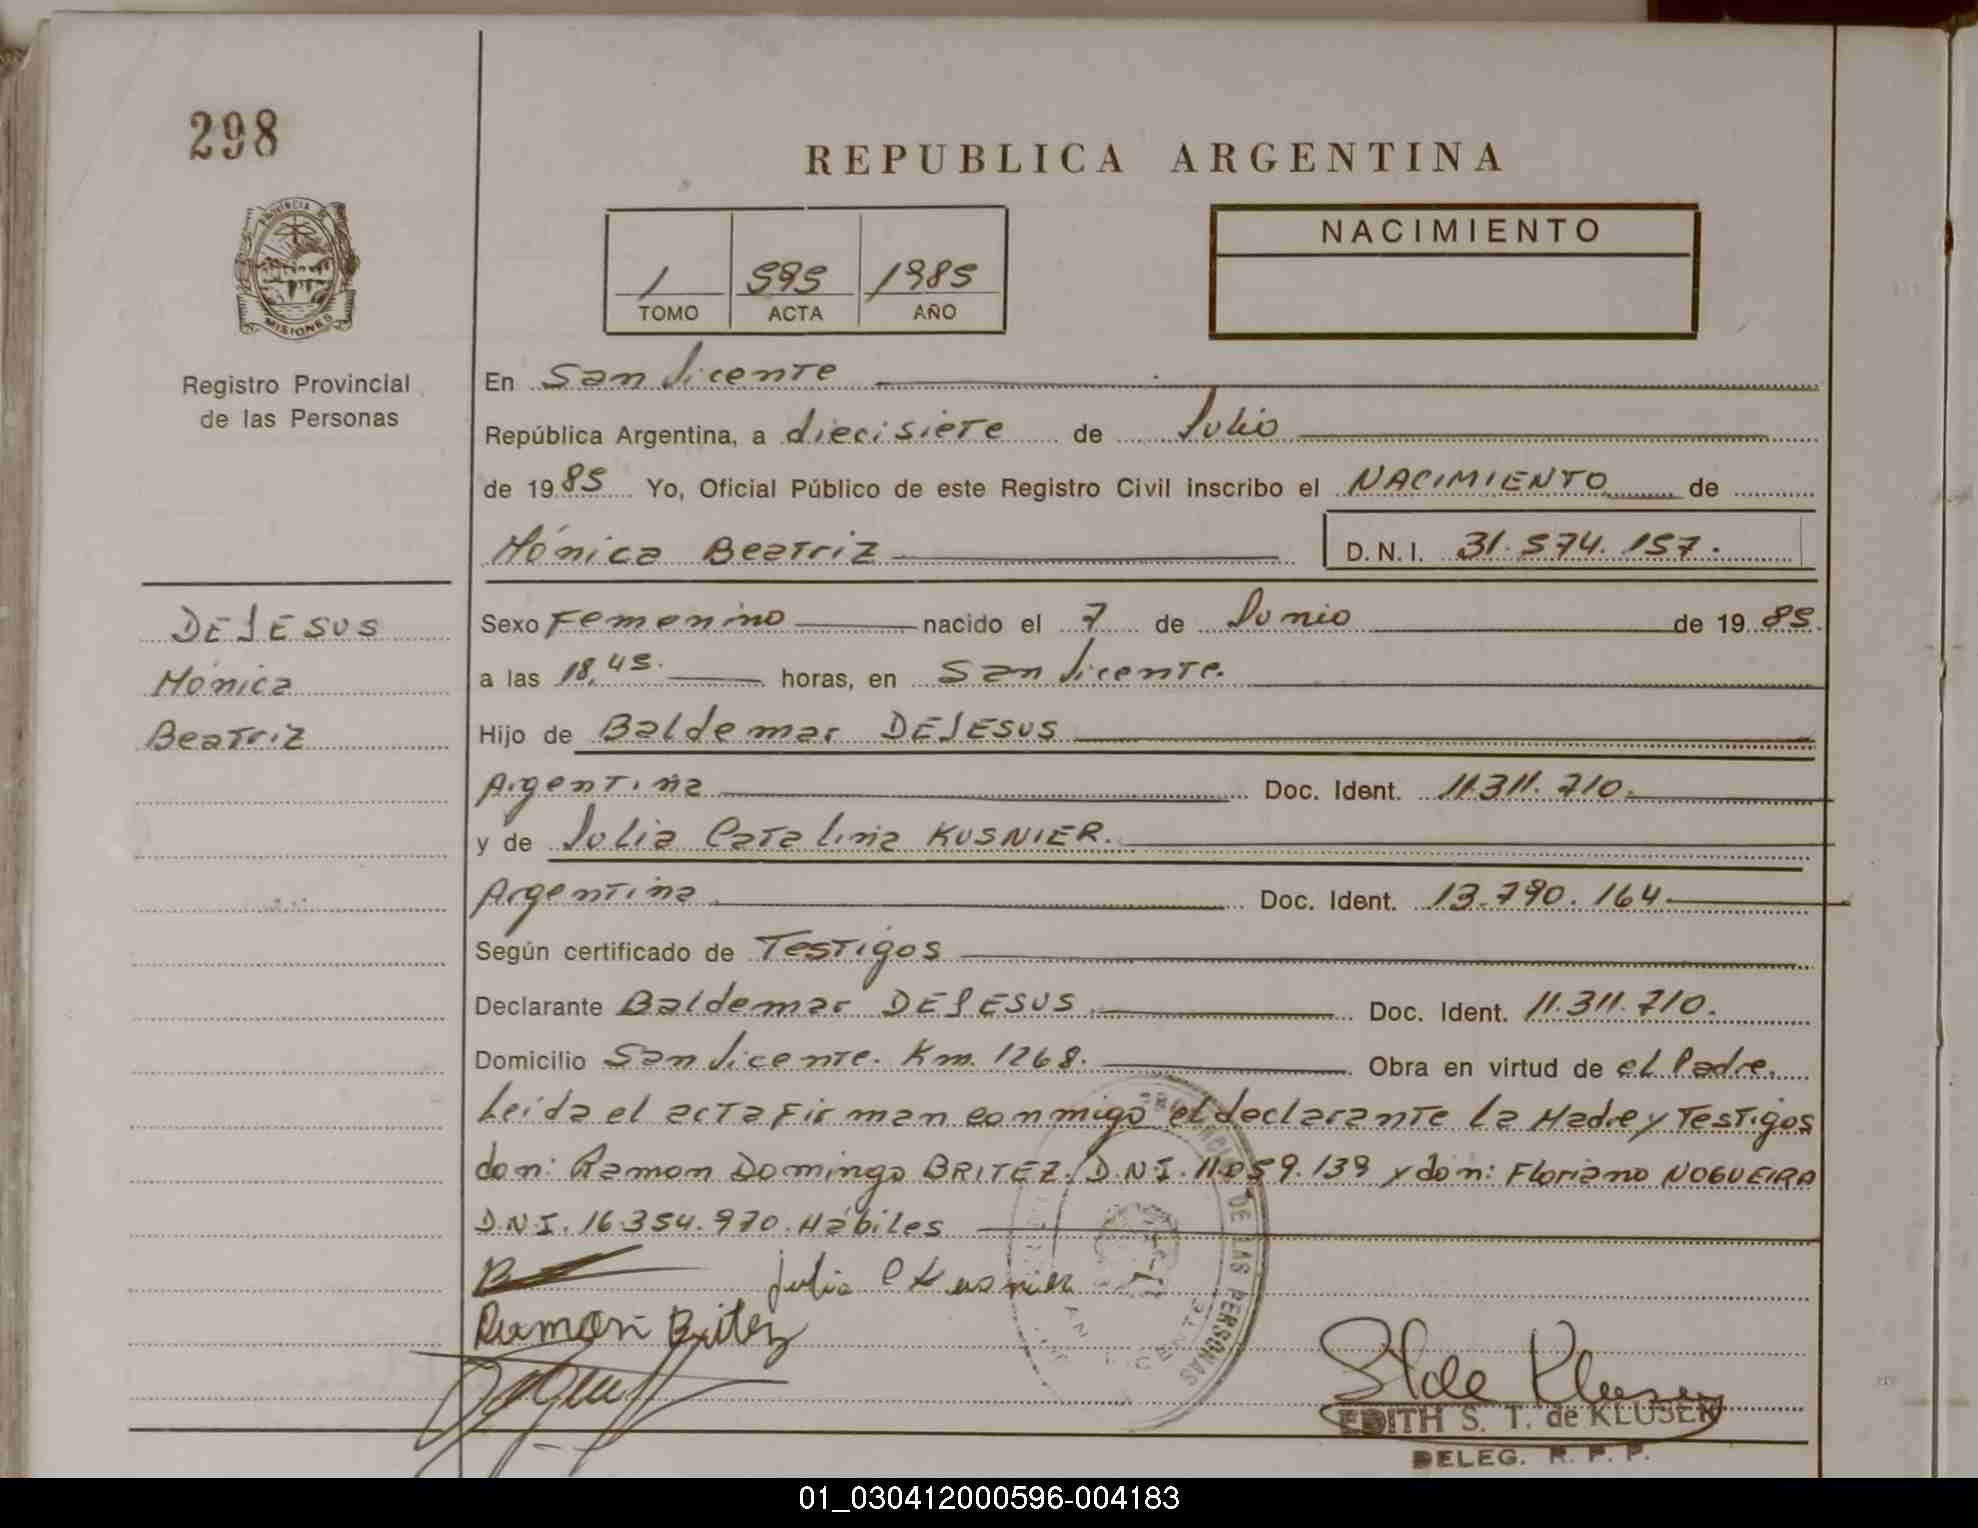 298
REPUBLICA ARGENTINA
PROVINCIA DE
MISIONES
Registro Provincial
de las Personas
1 595 1985
TOMO ACTA AÑO
NACIMIENTO
En San Vicente
República Argentina, a diecisiete de Julio
de 1985 Yo, Oficial Público de este Registro Civil inscribo el NACIMIENTO de
Mónica Beatriz D.N.I. 31.574.157.
DEJESUS
Mónica
Beatriz
Sexo Femenino nacido el 7 de Junio de 1985.
a las 18,45. horas, en San Vicente.
Hijo de Baldemar DEJESUS
Argentina Doc. Ident. 11.311.710.
y de Julia Catalina KUSNIER.
Argentina Doc. Ident. 13.790.164
Según certificado de Testigos
Declarante Baldemar DEJESUS Doc. Ident. 11.311.710.
Domicilio San Vicente. Km. 1268. Obra en virtud de el Padre.
Leída el acta firman conmigo el declarante la Madre y Testigos
don: Ramon Domingo BRITEZ. D.N.I. 11.059.139 y don: Floriano NOGUEIRA
D.N.I. 16.354.970. Hábiles
Julia C Kusnier
Ramon Britez
DE LAS PERSONAS
EDITH S. T. de KLUSEN
DELEG. R. P. P.
01_030412000596-004183